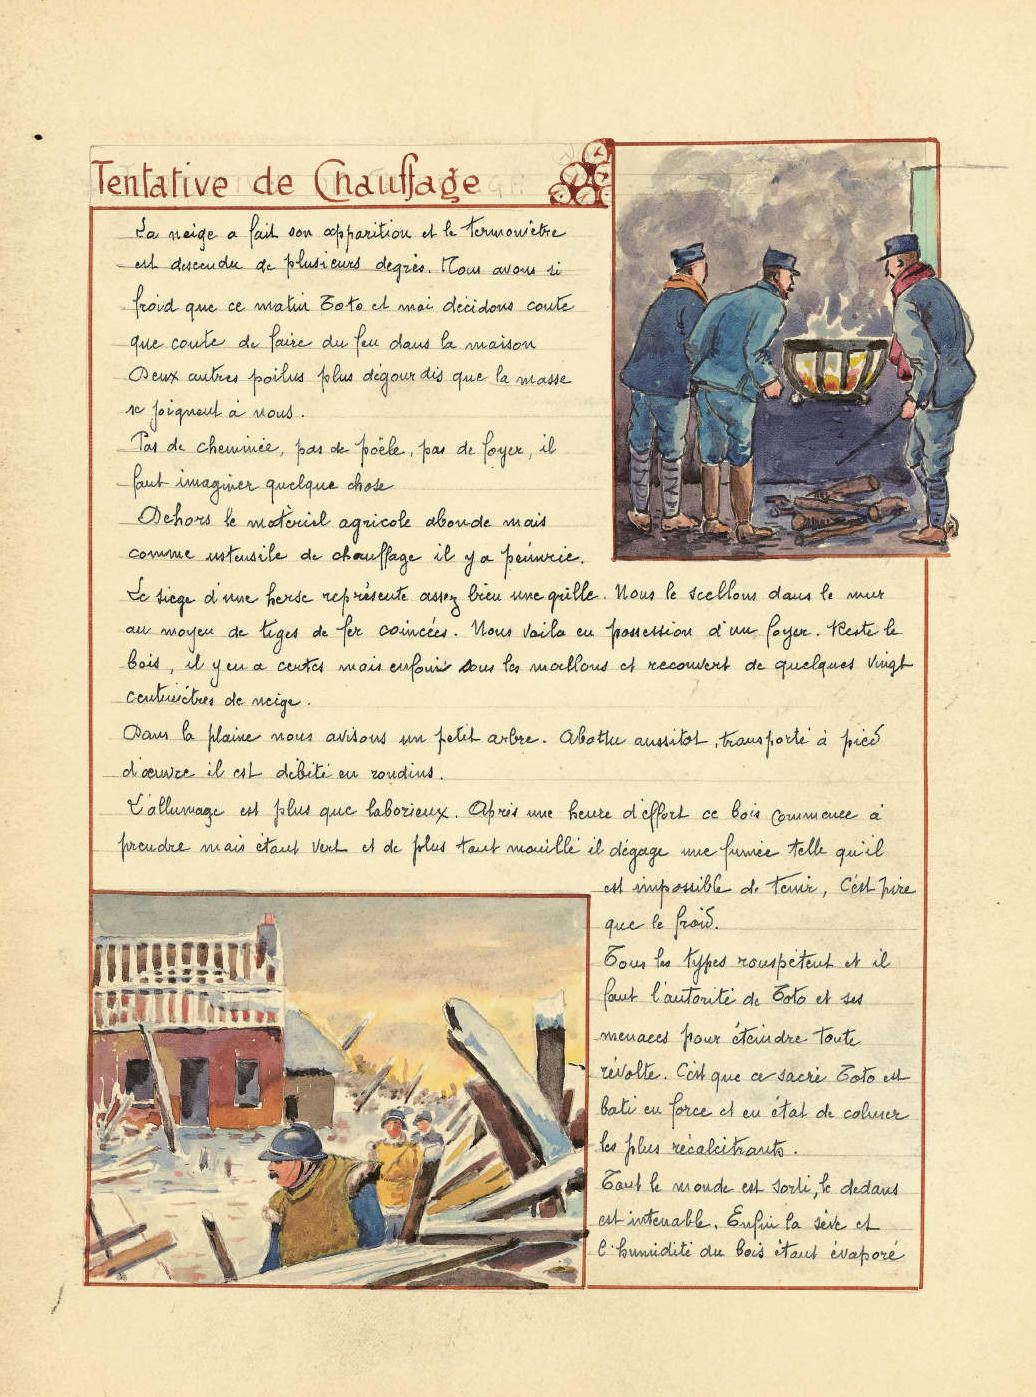 Tentative de Chauffage
La neige a fait son apparition et le termomètre
est descendu de plusieurs degrés. Nous avons si
froid que ce matin Toto et moi décidons coute
que coute de faire du feu dans la maison
Deux autres poilus plus dégourdis que la masse
se joignent à nous.
Pas de cheminée, pas de poêle, pas de foyer, il
faut imaginer quelque chose
Dehors le matériel agricole abonde mais
comme ustensile de chauffage il y a péinurie.
Le siège d'une herse représente assez bien une grille. Nous le scellons dans le mur
au moyen de tiges de fer coincées. Nous voila en possession d'un foyer. Reste le
bois, il y en a certes mais enfoui sous les moellons et recouvert de quelques vingt
centimètres de neige.
Dans la plaine nous avisons un petit arbre. Abattu aussitot, transporté à pied
d'œuvre il est débité en rondins.
L'allumage est plus que laborieux. Après une heure d'effort ce bois commence à
prendre mais étant vert et de plus tout mouillé il dégage une fumée telle qu'il
est impossible de tenir, c'est pire
que le froid.
Tous les types rouspètent et il
faut l'autorité de Toto et ses
menaces pour éteindre toute
révolte. C'est que ce sacré Toto est
bati en force et en état de calmer
les plus récalcitrants.
Tout le monde est sorti, le dedans
est intenable. Enfin la sève et
l'humidité du bois étant évaporé